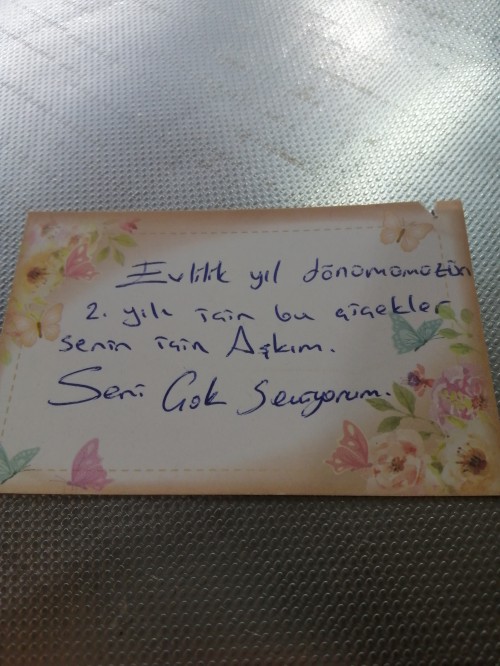 Evlilik yıl dönümümüzün
2. yılı için bu çiçekler
senin için Aşkım.
Seni Çok Seviyorum.